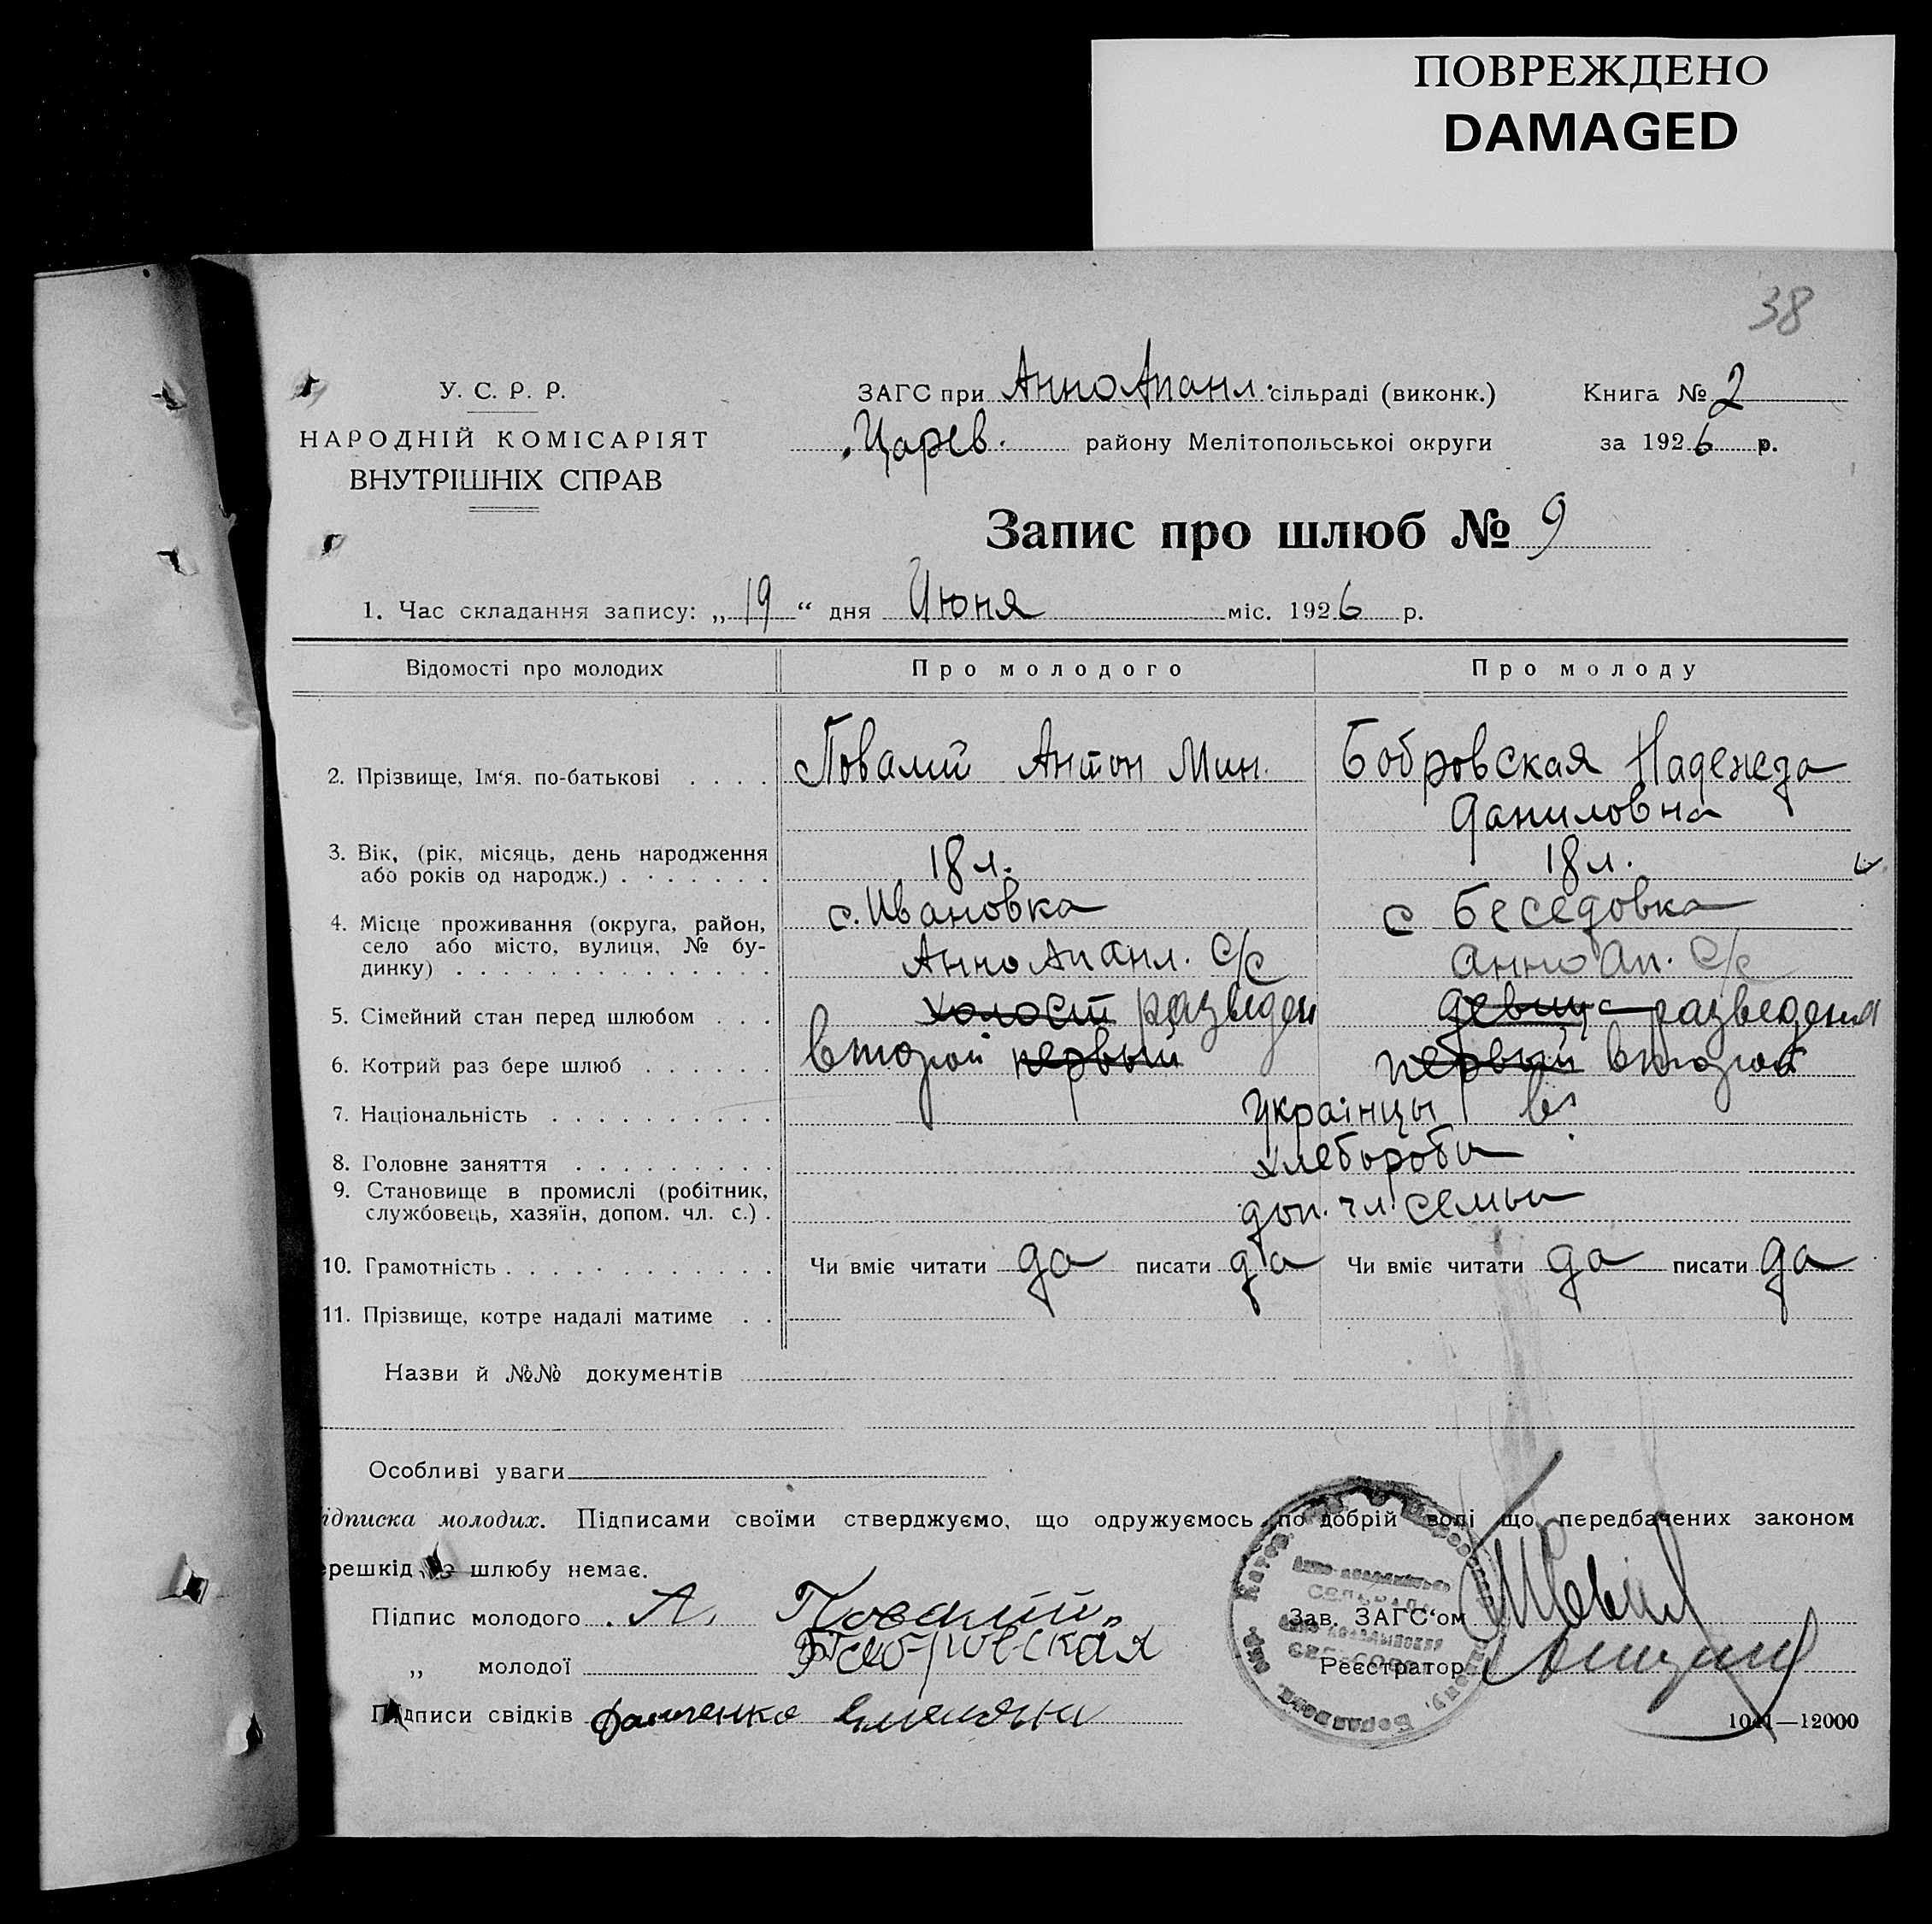 ПОВРЕЖДЕНО
DAMAGED
38
У. С. Р. Р.
НАРОДНІЙ КОМІСАРІЯТ
ВНУТРІШНІХ СПРАВ
ЗАГС при АнноАпанл. сільраді (виконк.)
Царев. району Мелітопольської округи
Книга № 2
за 1926 р.
Запис про шлюб № 9
1. Час складання запису: „19“ дня Июня міс. 1926 р.
Відомості про молодих Про молодого Про молоду
2. Прізвище, Ім‘я. по-батькові . . . . Повалий Антон Мин. Бобровская Надежда
Даниловна
3. Вік, (рік, місяць, день народження
або років од народж.) . . . . . . . 18 л. 18 л.
4. Місце проживання (округа, район,
село або місто, вулиця, № бу-
динку) . . . . . . . . . . . . . .
с. Ивановка
АнноАпанл. С/С
с Беседовка
АнноАп. С/С
5. Сімейний стан перед шлюбом . . . холост разведен девица разведена
6. Котрий раз бере шлюб . . . . . . второй первый первый второй
7. Національність . . . . . . . . . . Украінцы
8. Головне заняття . . . . . . . . . хлеборобы
9. Становище в промислі (робітник,
службовець, хазяїн, допом. чл. с.) . доп. чл. семьи
10. Грамотність . . . . . . . . . . . . Чи вміє читати да писати да Чи вміє читати да писати да
11. Прізвище, котре надалі матиме . .
Назви й №№ документів
Особливі уваги
ідписка молодих. Підписами своїми стверджуємо, що одружуємось по добрій волі що передбачених законом
ерешкід до шлюбу немає.
Підпис молодого А. Повалий
„ молодої Бобровская
Підписи свідків
Зав. ЗАГС‘ом
Реєстратор
1041—12000